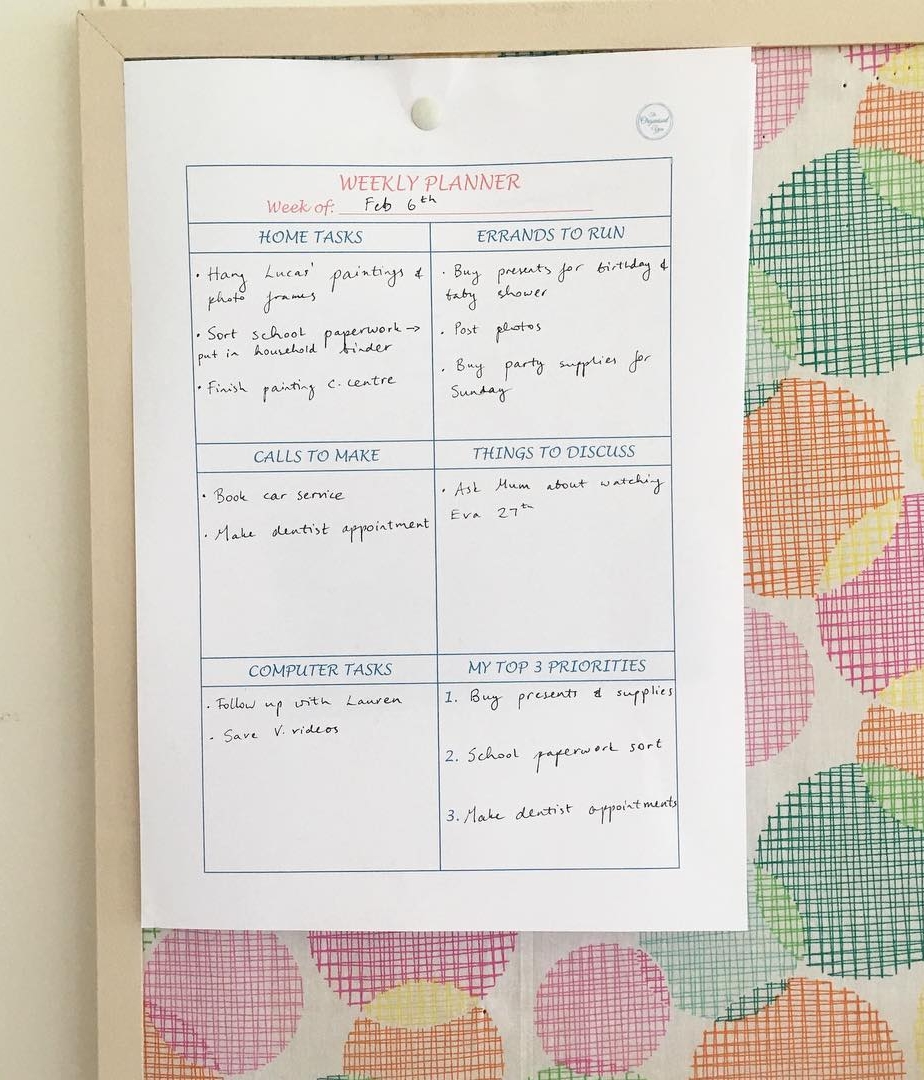 The Organised You
WEEKLY PLANNER
Week of: Feb 6th
HOME TASKS
• Hang Lucas' paintings &
photo frames
• Sort school paperwork →
put in household binder
• Finish painting C. centre
ERRANDS TO RUN
• Buy presents for birthday &
baby shower
• Post photos
• Buy party supplies for
Sunday
CALLS TO MAKE
• Book car service
• Make dentist appointment
THINGS TO DISCUSS
• Ask Mum about watching
Eva 27th
COMPUTER TASKS
• Follow up with Lauren
• Save V. videos
MY TOP 3 PRIORITIES
1. Buy presents & supplies
2. School paperwork sort
3. Make dentist appointments